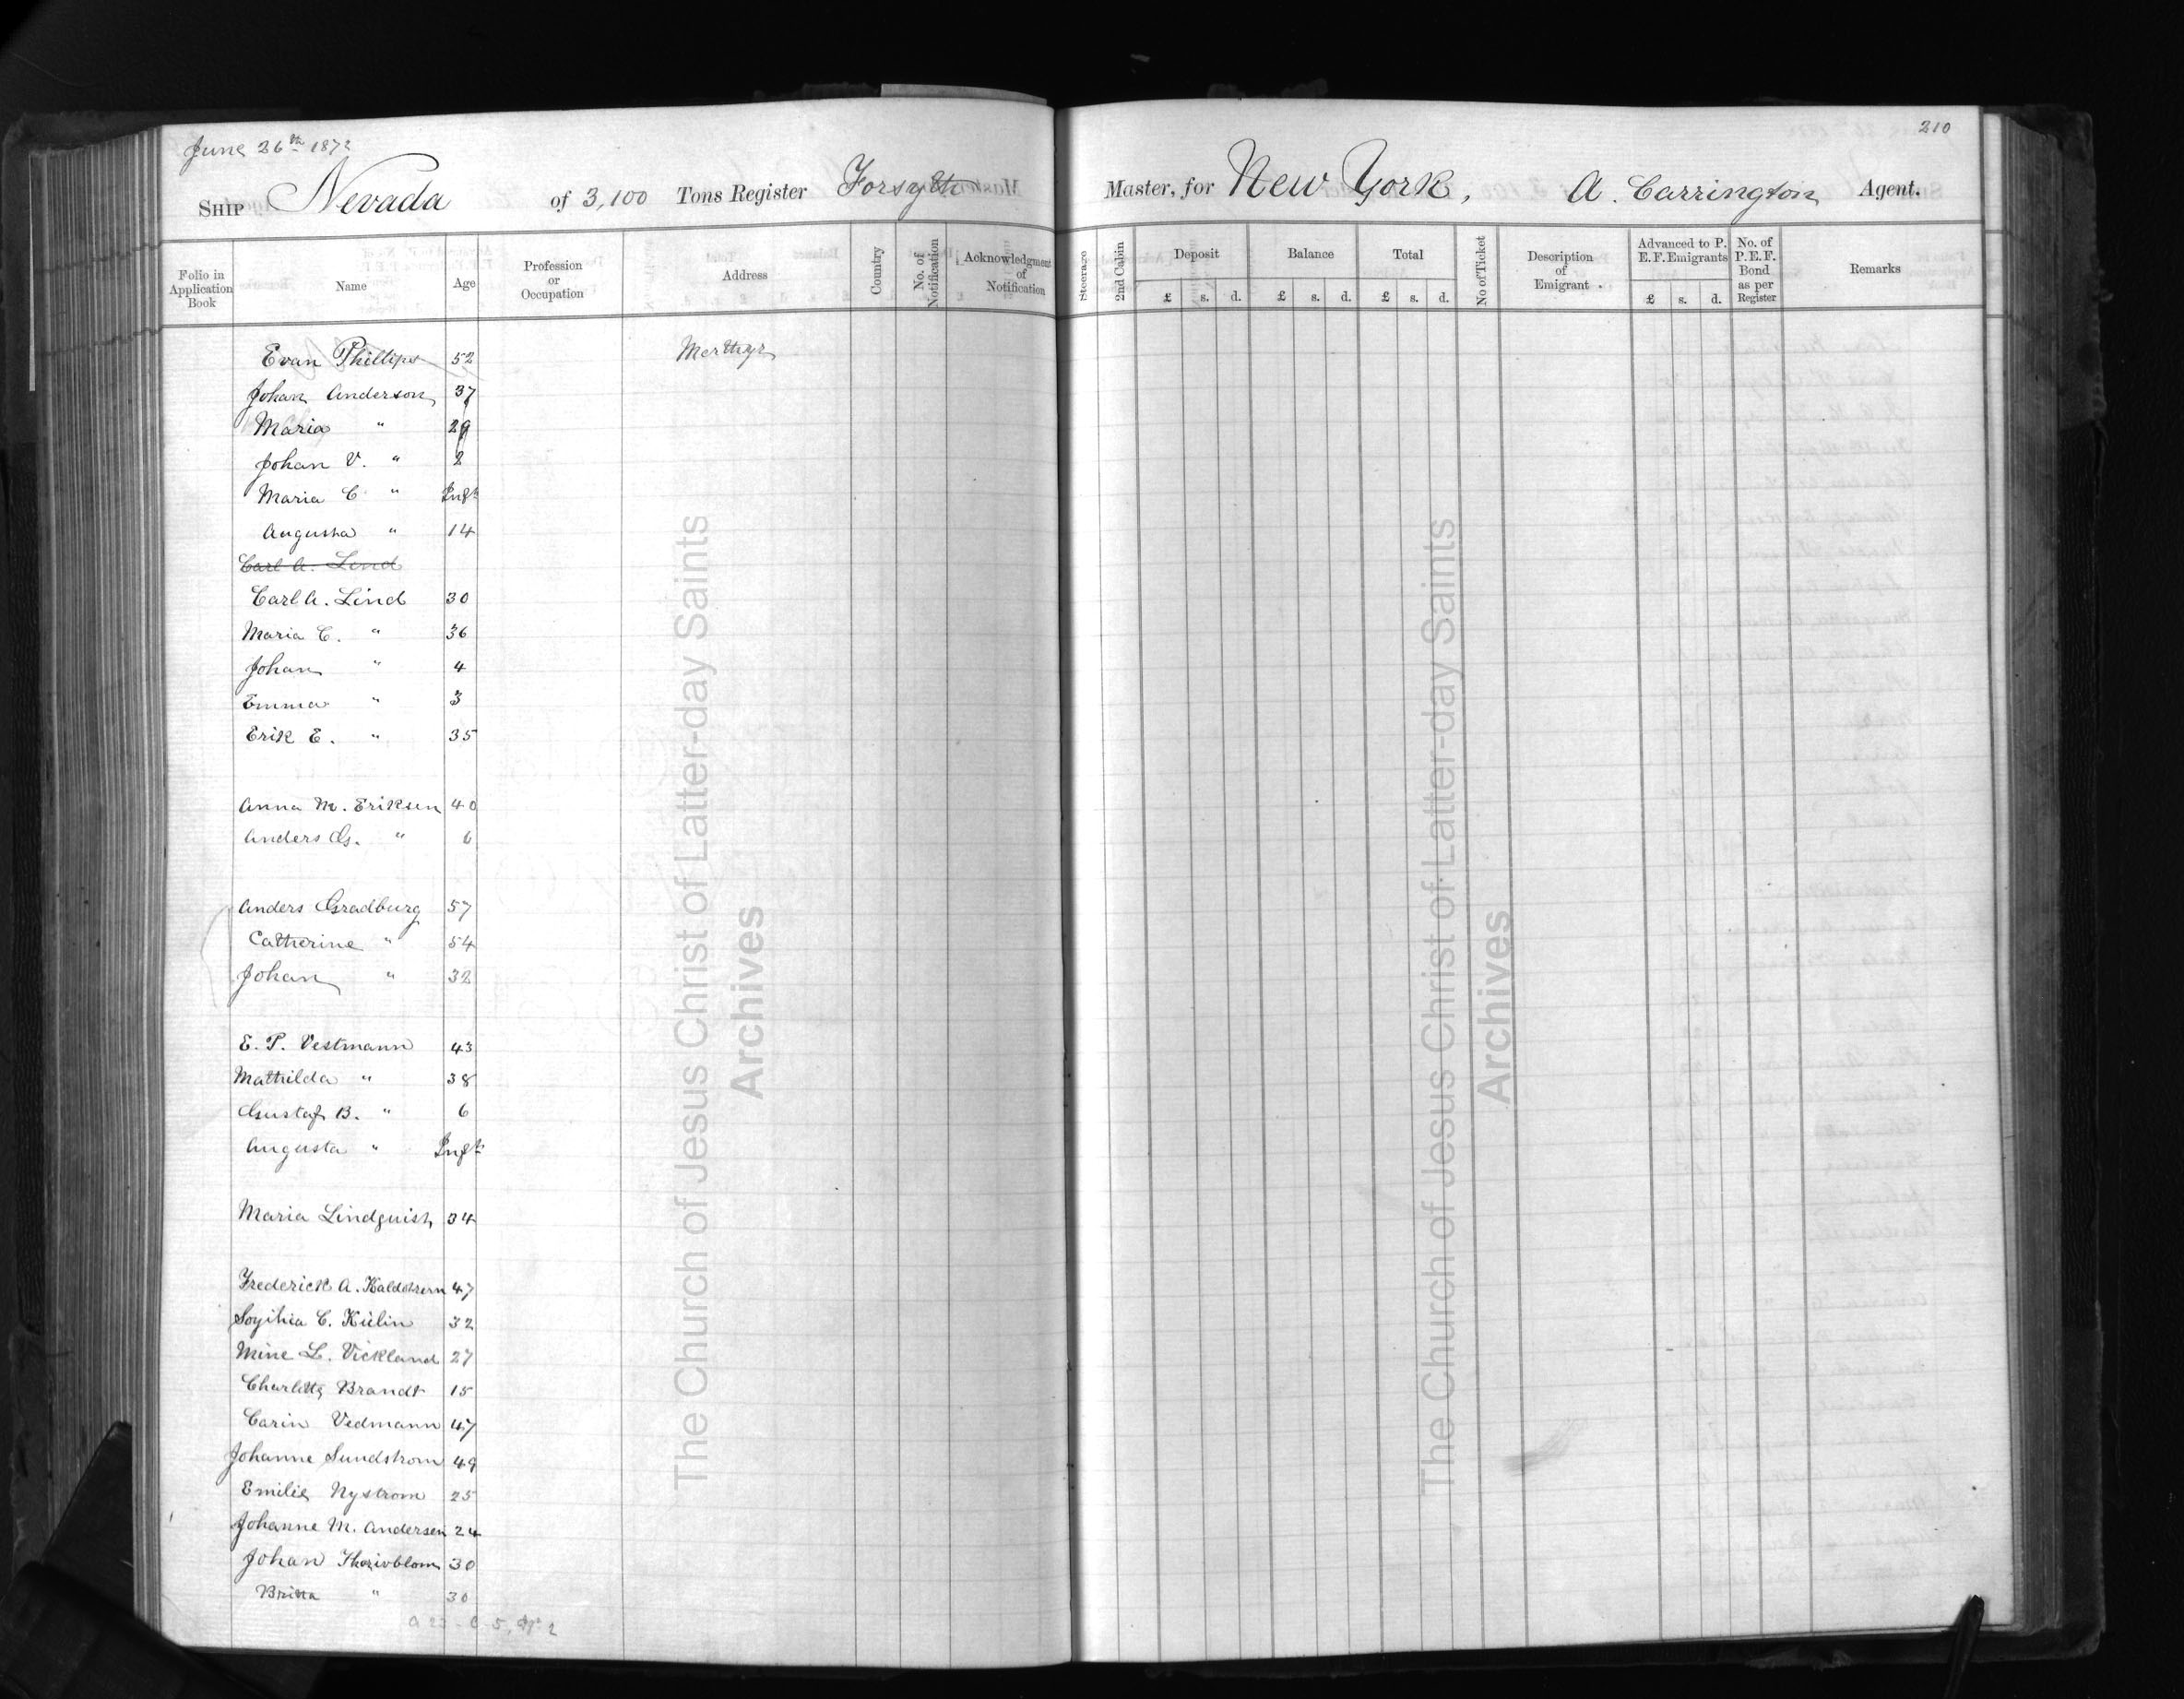 210
June 26th 1872
SHIP Nevada of 3,100 Tons Register Forsyth Master, for New York, A. Carrington Agent.
Folio in Application Book
Name
Age
Profession or Occupation
Address
Country
No. of Notification
Acknowledgment of Notification
Steerage
2nd Cabin
Deposit £ s. d.
Balance £ s. d.
Total £ s. d.
No of Ticket
Description of Emigrant.
Advanced to P. E. F. Emigrants £ s. d.
No. of P. E. F. Bond as per Register
Remarks
Evan Phillips 52 Merthyr
Johan Anderson 37
Maria " 29
Johan V. " 2
Maria C. " Inft
Augusta " 14
Carl A. Lind
Carl A. Lind 30
Maria C. " 36
Johan " 4
Emma " 3
Erik E. " 35
Anna M. Eriksen 40
Anders G. " 6
Anders Gradburg 57
Catherine " 54
Johan " 32
E. P. Vestmann 43
Mathilda " 38
Gustaf B. " 6
Augusta " Inft
Maria Lindquist 34
Frederick A. 47
Sophia C. 32
Mine L. Vickland 27
Charlotte Brandt 15
Carin Vedmann 47
Johanne Sundstrom 49
Emilie Nystrom 25
Johanne M. Andersen 24
Johan 30
Britta " 30
The Church of Jesus Christ of Latter-day Saints
Archives
The Church of Jesus Christ of Latter-day Saints
Archives